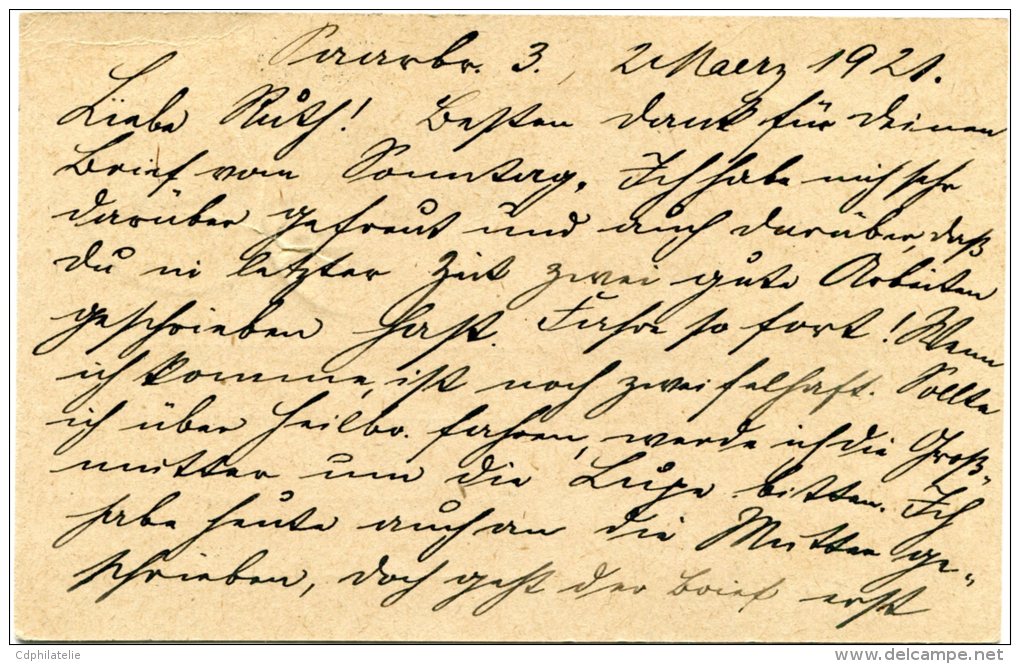 Saarbr. 3., 2 Maerz 1921.
Liebe Ruth! Besten Dank für deinen
Brief vom Sonntag. Ich habe mich sehr
darüber gefreut und auch darüber, daß
du in letzter Zeit zwei gute Arbeiten
geschrieben hast. Fahre so fort! Wann
ich komme, ist noch zweifelhaft. Sollte
ich über Heilbr. fahren, werde ich die Groß-
mutter um die Lupe bitten. Ich
habe heute auch an die Mutter ge-
schrieben, doch geht der Brief erst
Cdphilatelie
delcampe.net